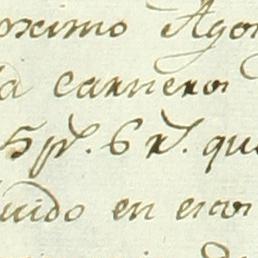 oximo Ago
a carnero
5 p.s 6 r.s que
uido en esos